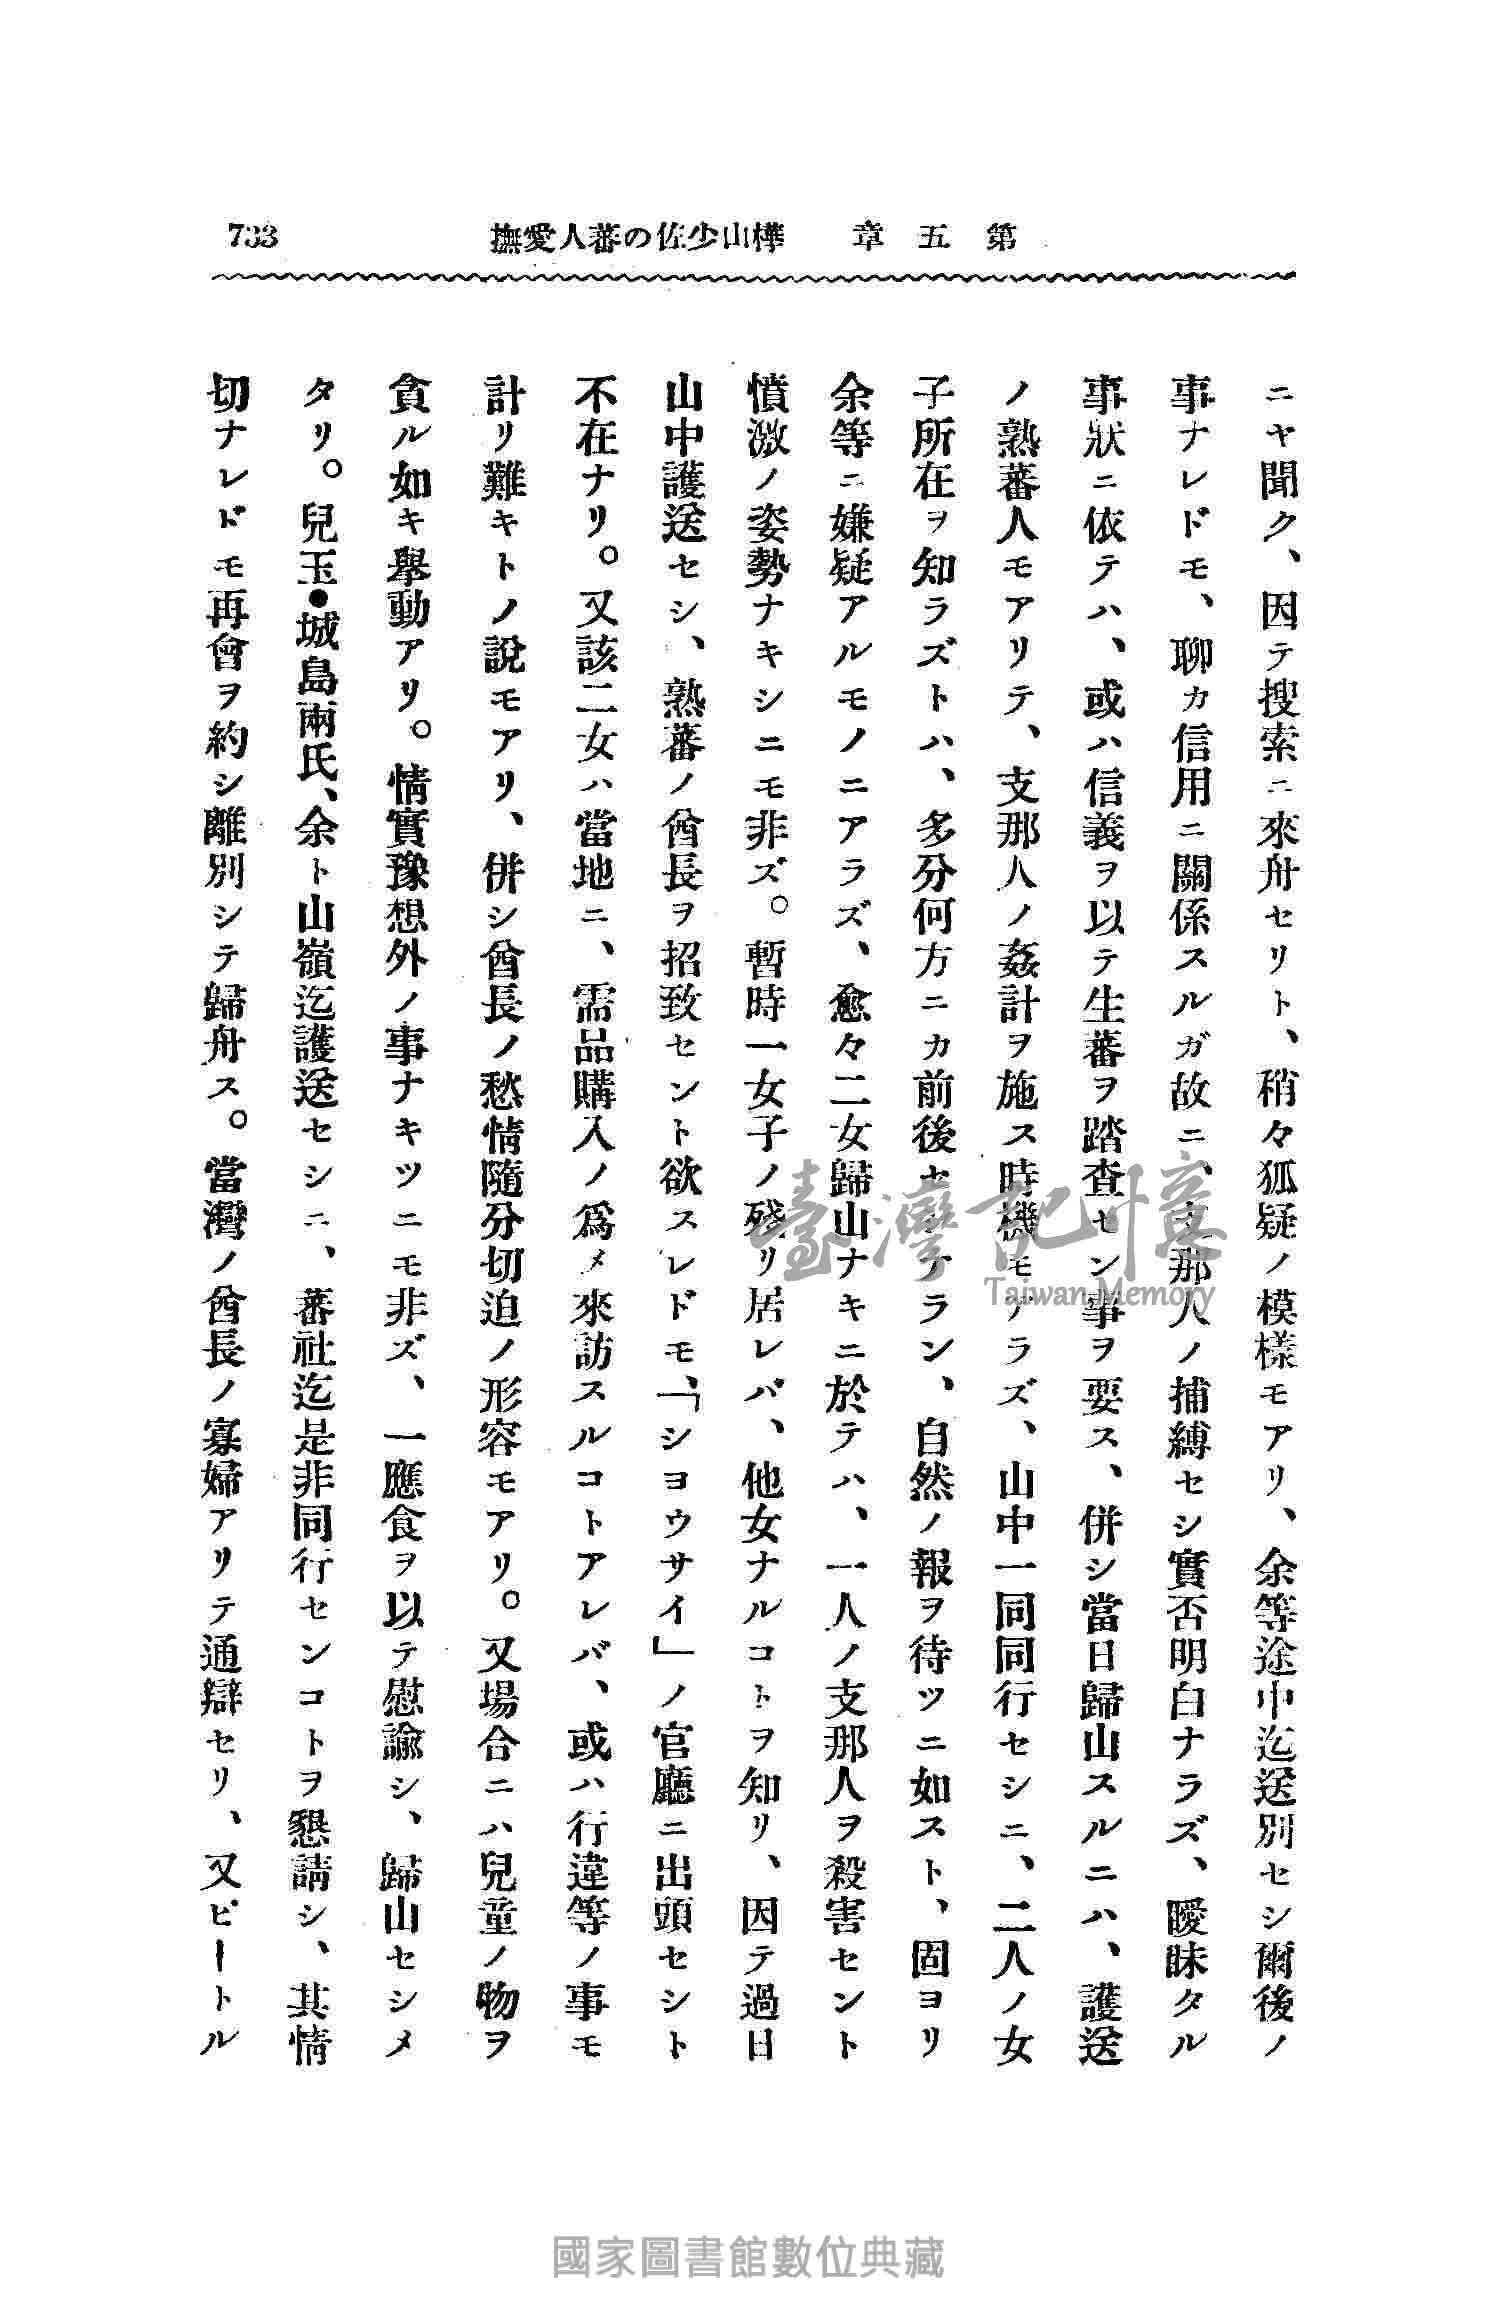 第五章 樺山少佐の蕃人愛撫 733
ニヤ聞ク、因テ搜索ニ來舟セリト、稍々狐疑ノ模樣モアリ、余等途中迄送別セシ爾後ノ
事ナレドモ、聊カ信用ニ關係スルガ故ニ、支那人ノ捕縛セシ實否明白ナラズ、曖昧タル
事狀ニ依テハ、或ハ信義ヲ以テ生蕃ヲ踏査セン事ヲ要ス、併シ當日歸山スルニハ、護送
ノ熟蕃人モアリテ、支那人ノ姦計ヲ施ス時機モアラズ、山中一同同行セシニ、二人ノ女
子所在ヲ知ラズトハ、多分何方ニカ前後セシナラン、自然ノ報ヲ待ツニ如スト、固ヨリ
余等ニ嫌疑アルモノニアラズ、愈々二女歸山ナキニ於テハ、一人ノ支那人ヲ殺害セント
憤激ノ姿勢ナキシニモ非ズ。暫時一女子ノ殘リ居レバ、他女ナルコトヲ知リ、因テ過日
山中護送セシ、熟蕃ノ酋長ヲ招致セント欲スレドモ、「シヨウサイ」ノ官廳ニ出頭セシト
不在ナリ。又該二女ハ當地ニ、需品購入ノ爲メ來訪スルコトアレバ、或ハ行違等ノ事モ
計リ難キトノ說モアリ、併シ酋長ノ愁情隨分切迫ノ形容モアリ。又場合ニハ兒童ノ物ヲ
貪ル如キ擧動アリ。情實豫想外ノ事ナキツニモ非ズ、一應食ヲ以テ慰諭シ、歸山セシメ
タリ。兒玉●城島兩氏、余ト山嶺迄護送セシニ、蕃社迄是非同行センコトヲ懇請シ、其情
切ナレドモ再會ヲ約シ離別シテ歸舟ス。當灣ノ酋長ノ寡婦アリテ通辯セリ、又ビートル
臺灣記憶
Taiwan Memory
國家圖書館數位典藏